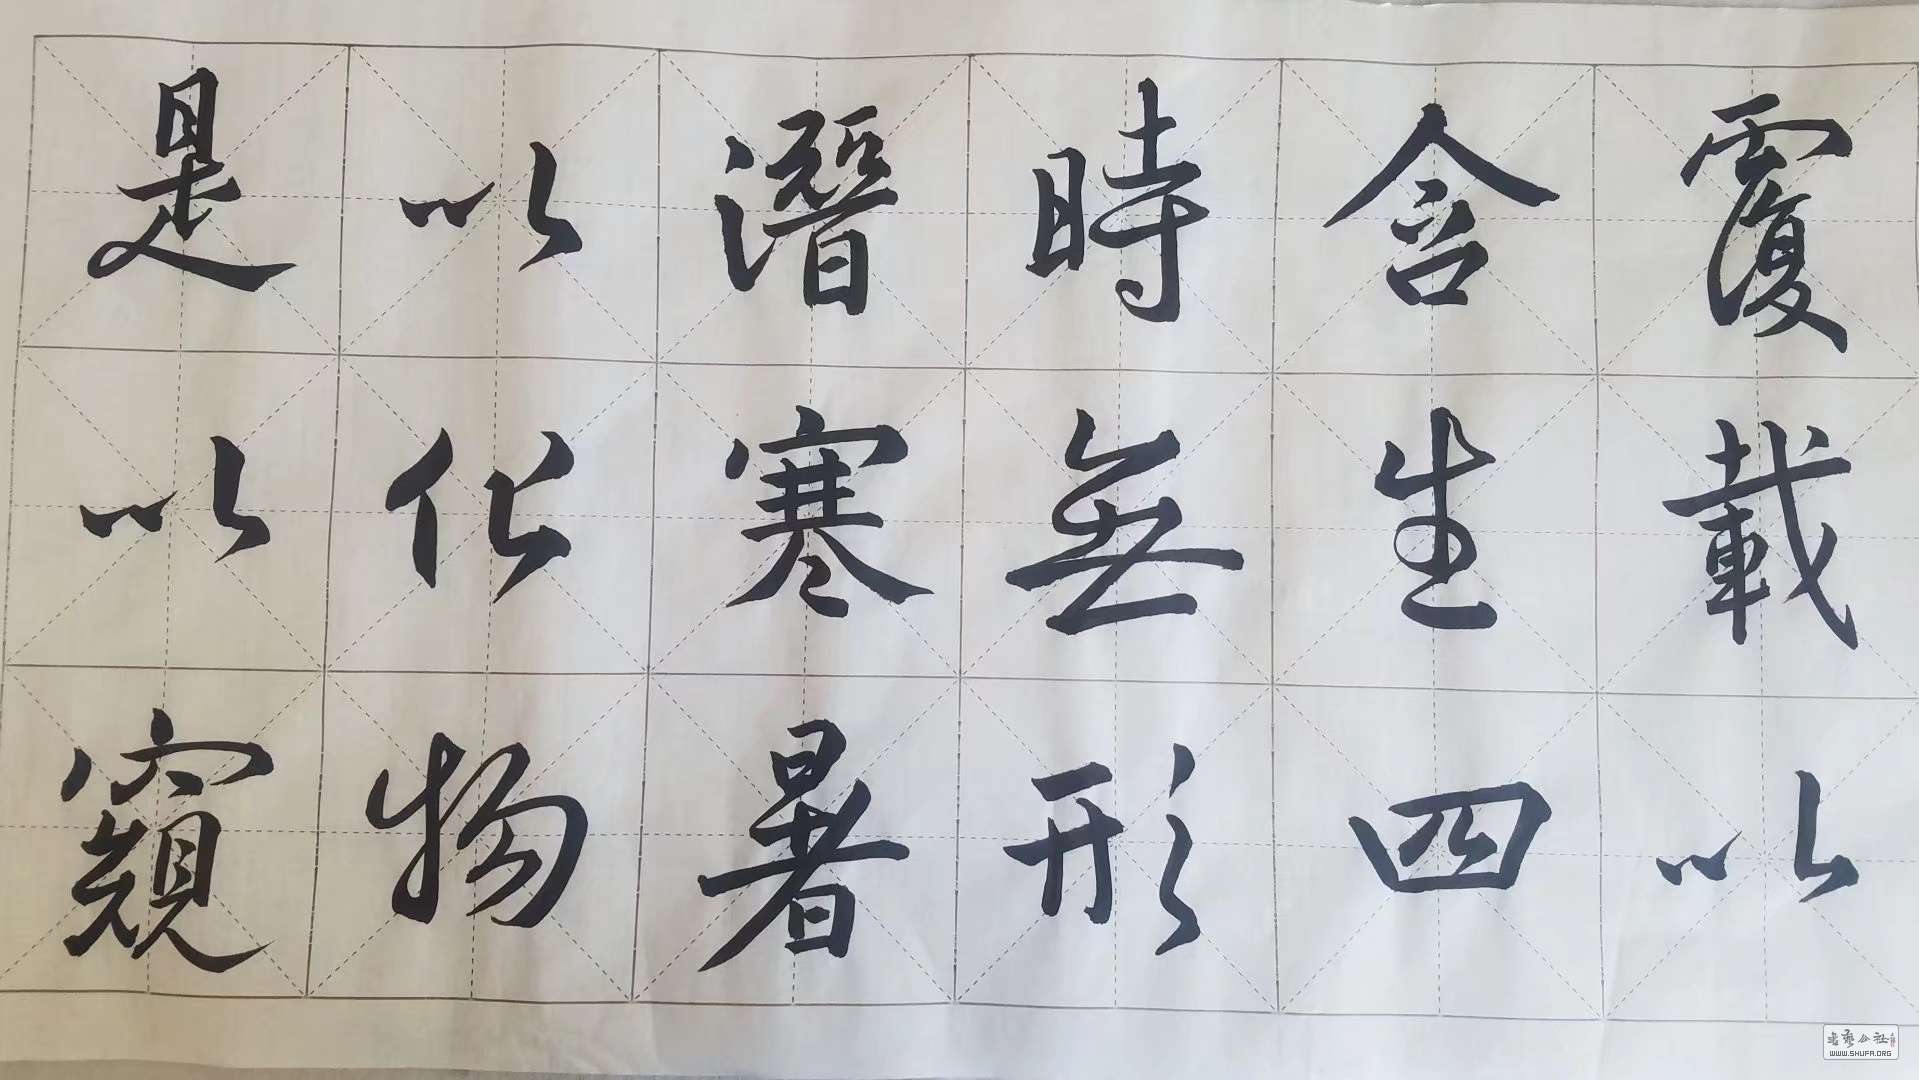 覆載以
含生四
時無形
潛寒暑
以化物
是以窺
书艺公社
WWW.SHUFA.ORG